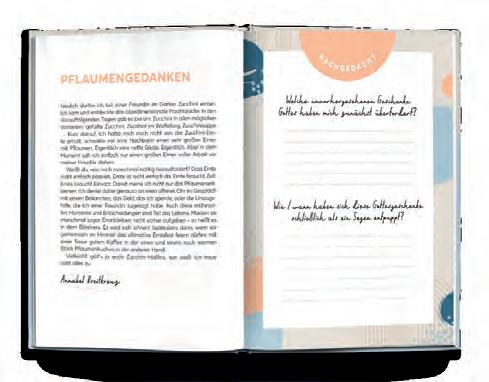 PFLAUMENGEDANKEN
Neulich durfte ich bei einer Freundin im Garten Zucchini ernten.
Ich kam und entdeckte drei überdimensionale Prachtstücke. In den
darauffolgenden Tagen gab es bei uns Zucchini in allen möglichen
Varianten: gefüllte Zucchini, Zucchini im Waffelteig, Zucchinisuppe.
Kurz darauf, ich hatte mich noch nicht von der Zucchini-Ern-
te erholt, schenkte mir eine Nachbarin einen sehr großen Eimer
mit Pflaumen. Eigentlich eine nette Geste. Eigentlich. Aber in dem
Moment sah ich einfach nur einen großen Eimer voller Arbeit vor
meiner Haustür stehen.
Weißt du, was mich manchmal richtig herausfordert? Dass Ernte
nicht einfach passiert. Ernte ist nicht einfach da. Ernte braucht Zeit.
Ernte braucht Einsatz. Damit meine ich nicht nur das Pflaumenent-
steinen. Ich denke dabei genauso an mein offenes Ohr im Gespräch
mit einem Bekannten, das Geld, das ich spende, oder die Umzugs-
hilfe, die ich einer Freundin zugesagt habe. Auch diese
Momente und Entscheidungen sind Teil des Lebens. Müssen sie
manchmal sogar. Dranbleiben, nicht vorher aufgeben – so heißt es
in dem Bibelvers. Es wird sich lohnen! Spätestens dann, wenn wir
gemeinsam im Himmel das ultimative Erntefest feiern dürfen mit
einer Tasse gutem Kaffee in der einen und einem noch warmen
Stück Pflaumenkuchen in der anderen Hand.
Vielleicht gibt's ja auch Zucchini-Muffins, wer weiß.
Annabel Breitkreuz
NACHGEDACHT
Welche unvorhergesehenen Geschenke
Gottes haben mich zunächst überfordert?
Wie / wann haben sich diese Gottesgeschenke
schließlich als ein Segen entpuppt?